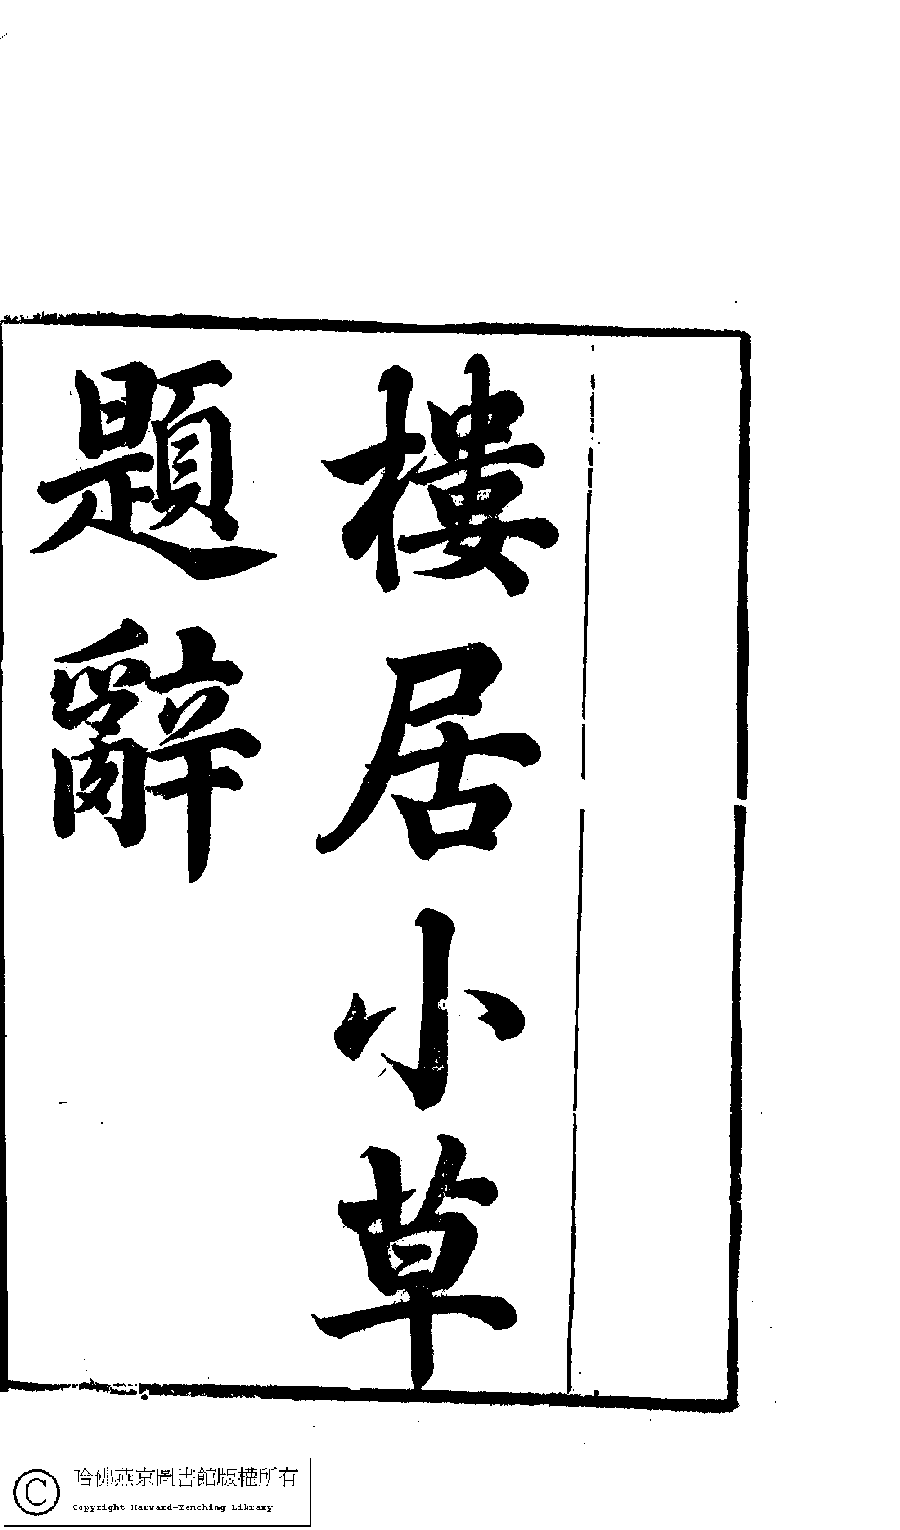 樓居小草
題辭
哈佛燕京圖書館版權所有
Copyright Harvard-Yenching Library